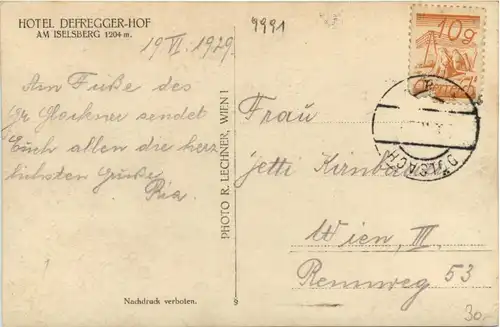 HOTEL DEFREGGER-HOF
AM ISELSBERG 1204 m.
19 VI. 1929
9991
Am Fuße des
Gr Glockner sendet
Euch allen die herz
lichsten Grüße
Ria
PHOTO R. LECHNER, WIEN I
10g
Frau
Jetti Kirnbauer
Wien, III
Rennweg 53
Nachdruck verboten.
9
30.-